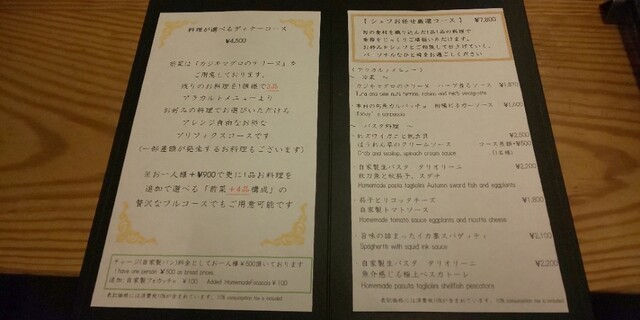 料理が選べるディナーコース
¥4,500
前菜は『カジキマグロのクリース』を
ご用意しております。
残りのお料理を1価格で3品
アラカルトメニューより
お好みの料理でお選びいただける
アレンジ自由なお得な
プリフィクスコースです
(一部差額が発生するお料理もございます)
※お一人様+¥900で更に1品お料理を
追加で選べる「前菜+4品構成」の
贅沢なフルコースでもご用意可能です
チャージ(自家製パン)料金としてお一人様¥500頂いております
I have one person ¥500 as bread prices.
追加:自家製フォカッチャ ¥100 Added HomemadeFocaccia ¥100
表記価格には消費税10%が含まれています。
【シェフお任せ厳選コース】 ¥7,800
旬の素材を織り込んだ1品1品の料理で
季節をじっくりご堪能いただけます。
お好みをシェフとご相談して仕上げていく、
パーソナルなひと時をお過ごしください
(アラカルトメニュー)
~ 冷菜 ~
カジキマグロのクリース ハーブ香るソース ¥1,870
¥1,600
~ パスタ料理 ~
紅ズワイガニと帆立貝 ¥2,500
ほうれん草のクリームソース コース差額+500
Crab and scallop, spinach cream sauce (1名様)
自家製生パスタ タリオリーニ ¥2,200
秋刀魚と秋茄子、スダチ
Homemade pasta taglioles Autumn sword fish and eggplants
茄子とリコッタチーズ ¥1,800
自家製トマトソース
Homemade tomato sauce eggplants and ricotta cheese
旨味の詰まったイカ墨スパゲティ ¥2,100
Spaghetti with squid ink sauce
自家製生パスタ タリオリーニ ¥2,200
魚介感じる極上ペスカトーレ
Homemade pasuta taglioles shellfish pescatora
表記価格には消費税10%が含まれています。